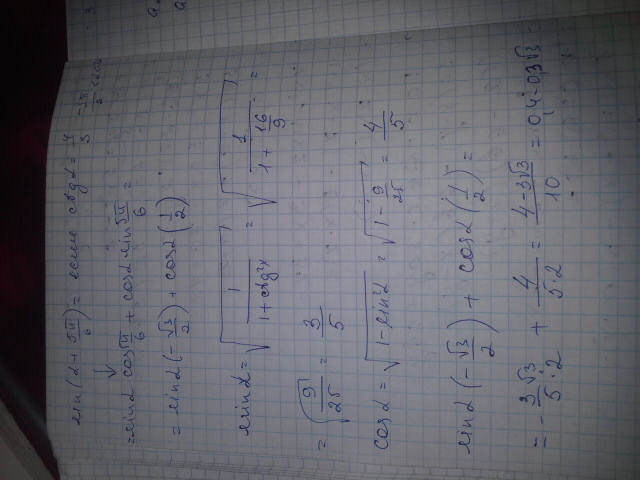 sin(α + 5π/6) = если ctgα = 4/3  -3π/2 <α<
= sinα cos 5π/6 + cosα sin 5π/6 =
= sinα (-√3/2) + cosα (1/2)
sinα = √(1/(1+ctg²x)) = √(1/(1+16/9)) =
= √(9/25) = 3/5
cosα = √(1-sin²α) = √(1-9/25) = 4/5
sinα (-√3/2) + cosα (1/2) =
= - 3√3/(5·2) + 4/(5·2) = (4-3√3)/10 = 0,4-0,3√3